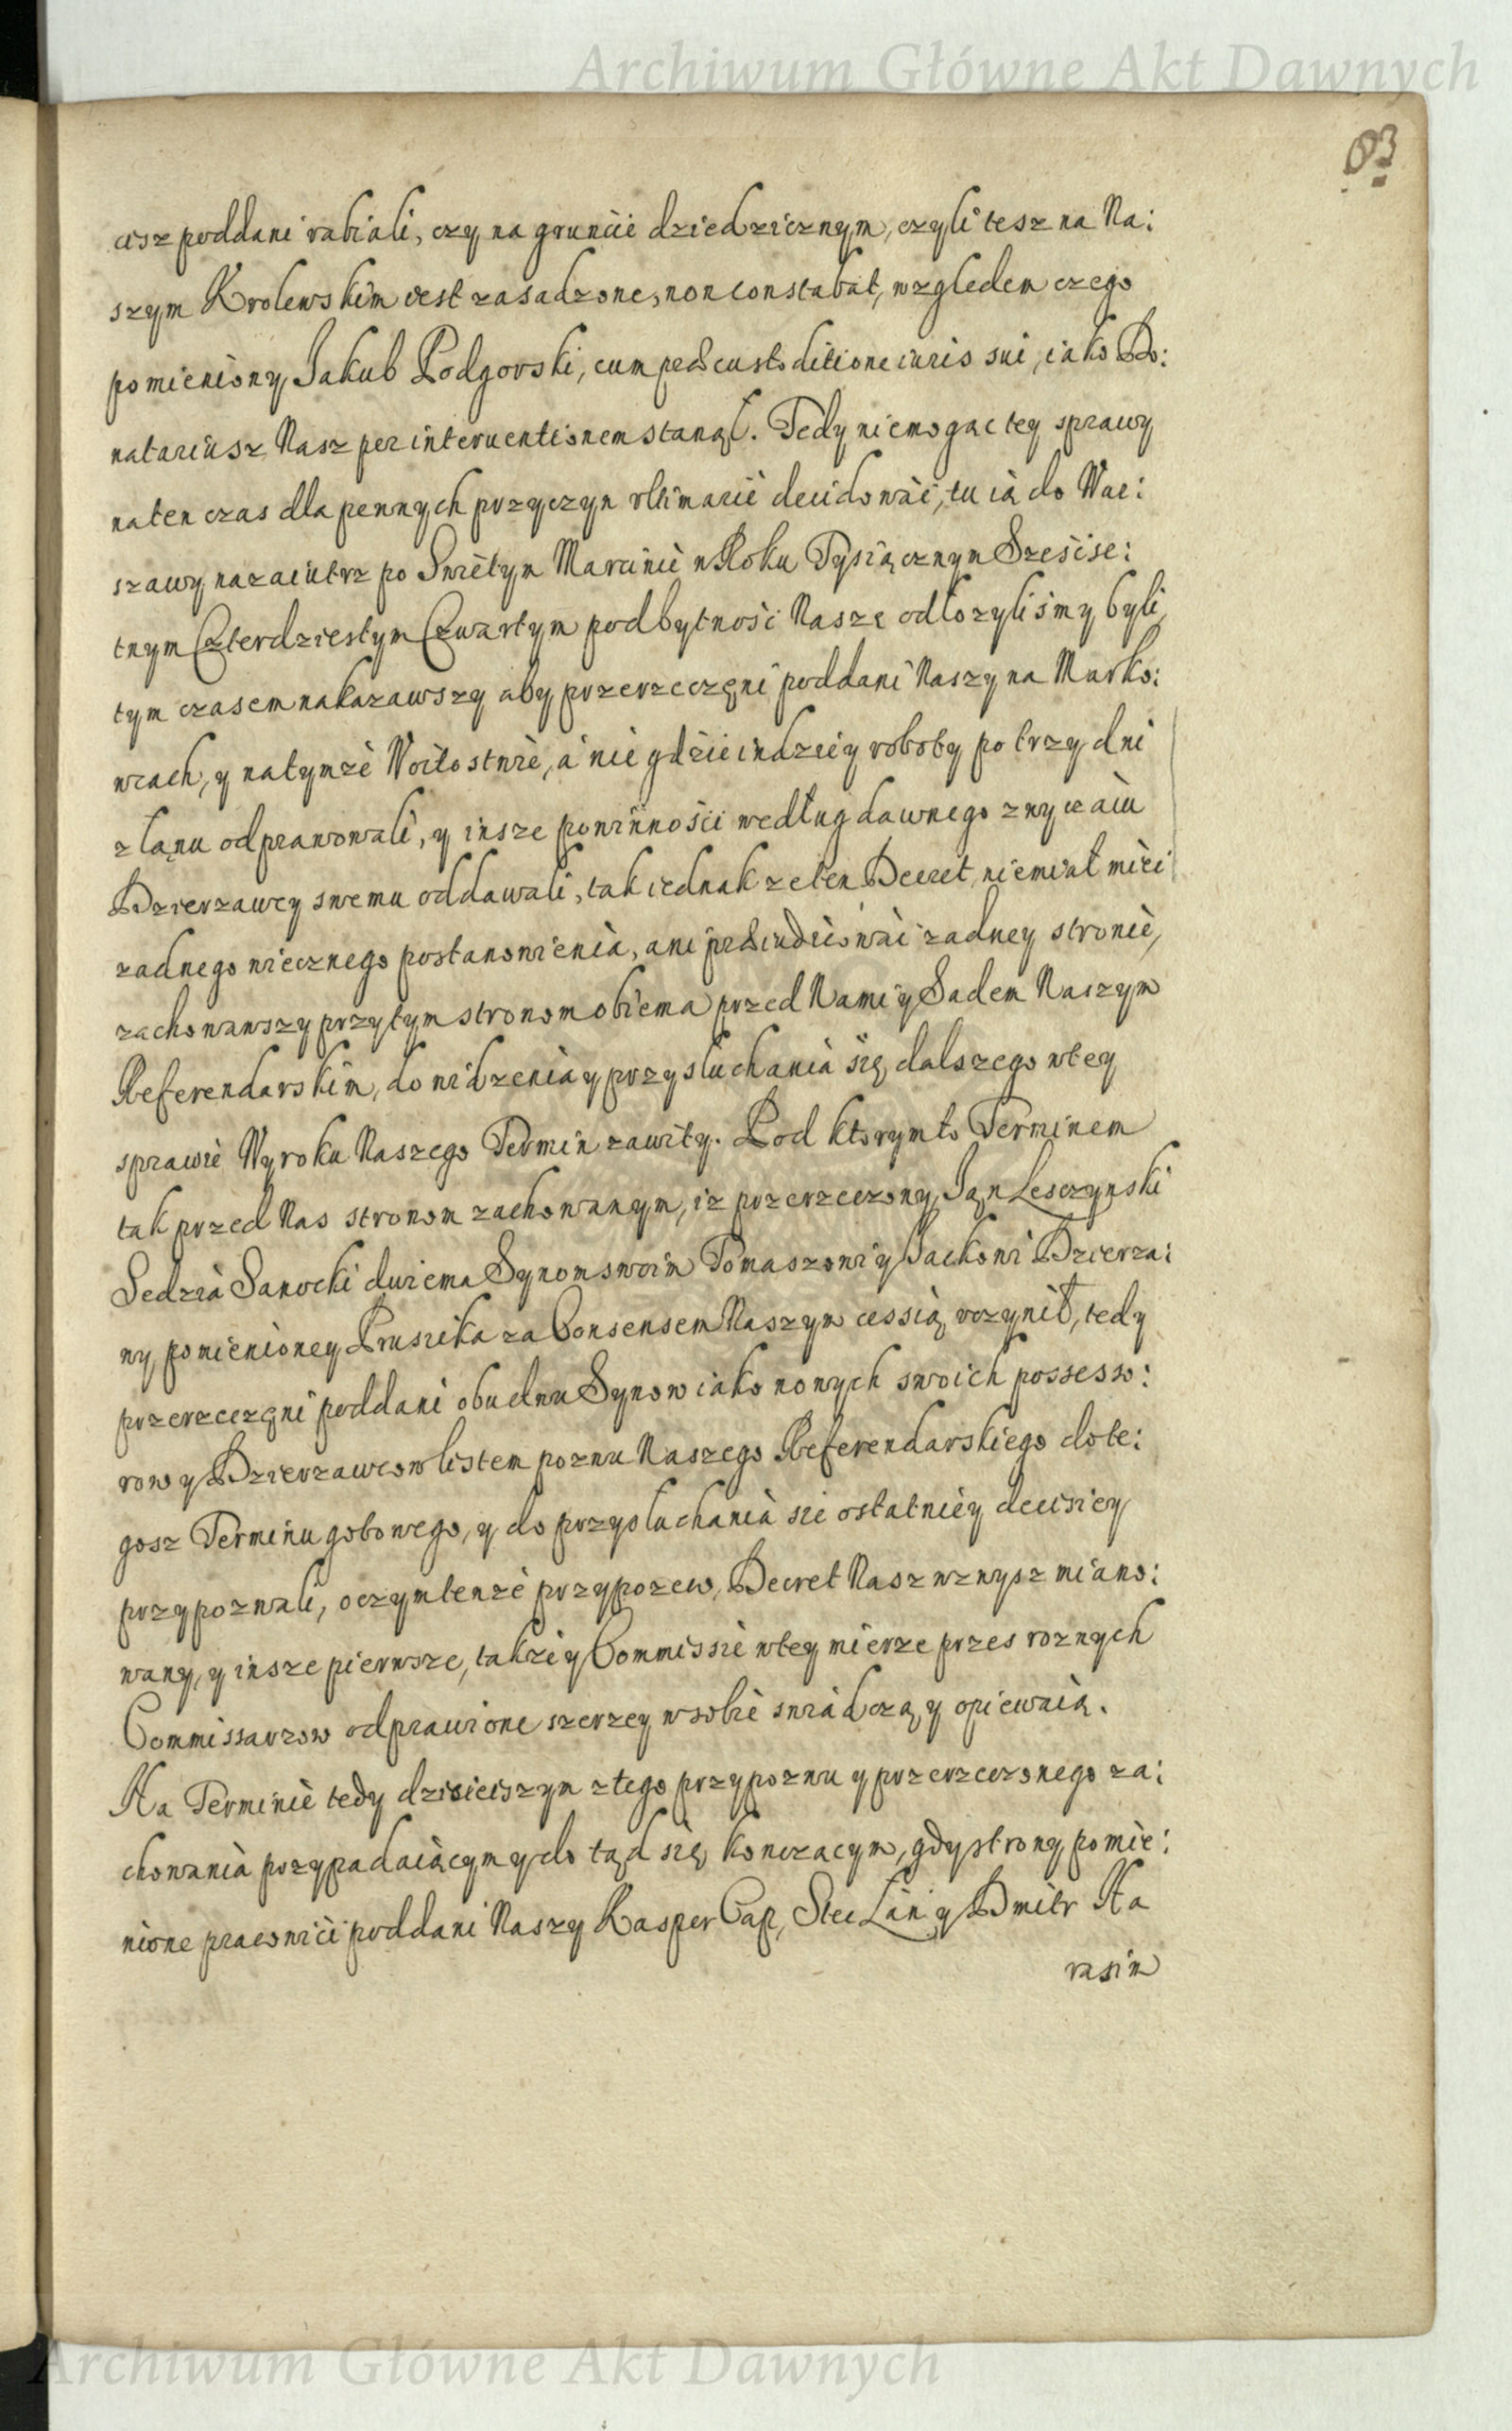 Archiwum Główne Akt Dawnych
83
cisz poddani rabiali, czy na gruncie dziedzicznym, czyli tesz na Na:
szym Krolewskim iest zasadzone, non constabat, względem czego
pomieniony Jakub Podgorski, cum præcustoditione iuris sui, iako Do:
natariusz Nasz per interuentionem stanął. Tedy niemogąc tey sprawy
naten czas dla pewnych przyczyn vltimarie decidować, tu ią do War:
szawy nazaiutrz po Swiętym Marcinie w Roku Tysiącznym Szescse:
tnym Czterdziestym Czwartym pod bytność Naszę odłozylismy byli,
tym czasem nakazawszy aby przerzeczęni poddani Naszy na Marko:
wcach, y natymże Woitostwie, a nie gdzieindziey roboty po trzy dni
złanu odprawowali, y insze powinności według dawnego zwyczaiu
Dzierzawcy swemu oddawali, tak iednak ze ten Decret, niemiał mieć
zadnego wiecznego postanowienia, ani præiudicować zadney stronie,
zachowawszy przytym stronom obiema przed Nami y Sądem Naszym
Referendarskim, do widzenia y przysłuchania się dalszego wtey
sprawie Wyroku Naszego Termin zawity. Pod ktorymto Terminem
tak przed Nas stronom zachowanym, iz przerzeczony Jan Lesczynski
Sędzia Sanocki dwiema Synom swoim Tomaszowi y Jackowi Dzierza:
wy pomienioney Prusieka za Consensem Naszym cessią vczynił, tedy
przerzeczęni poddani obudwu Synow iako nowych swoich possesso:
row y Dzierzawcow listem pozwu Naszego Referendarskiego dote:
gosz Terminu gotowego, y do przysłuchania sie ostatniey decisiey
przypozwali, oczymtenże przypozew, Decret Nasz wzwysz miano:
wany, y insze pierwsze, takze y Commissie wtey mierze przes roznych
Commissarzow odprawione szerzey wsobie swiadczą y opiewaią.
Na Terminie tedy dzisieiszym ztego przypozwu y przerzeczonego za:
chowania przypadaiącym y do tąd się kończacym, gdy strony pomie:
nione praewnici poddani Naszy Kasper Cap, Stec Lan y Dmitr Ha
rasim
Archiwum Główne Akt Dawnych